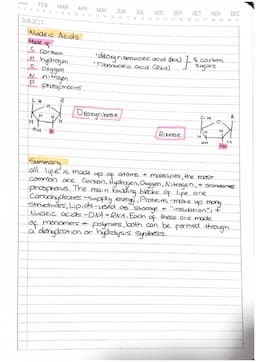 FEB MAR APR MAY JUN JUL AUG SEP OCT NOV DEC
SUBJECT:
Nucleic Acids
Made of
C carbon
H hydrogen
O oxygen
N nitrogen
P phosphorus
• deoxyribonucleic acid (DNA)
• ribonucleic acid (RNA)
5 carbon
sugars
Deoxyribose
Ribose
Summary
all life is made up of atoms + molecules, the most
common are Carbon, Hydrogen, Oxygen, Nitrogen, + sometimes
phosphorus. The main building blocks of life are
Carbohydrates - supply energy, Proteins - make up many
structures, Lipids - used as storage + "insulation", +
Nucleic acids - DNA + RNA. Each of these are made
of monomers + polymers, both can be formed through
a dehydration or hydrolysis synthesis.